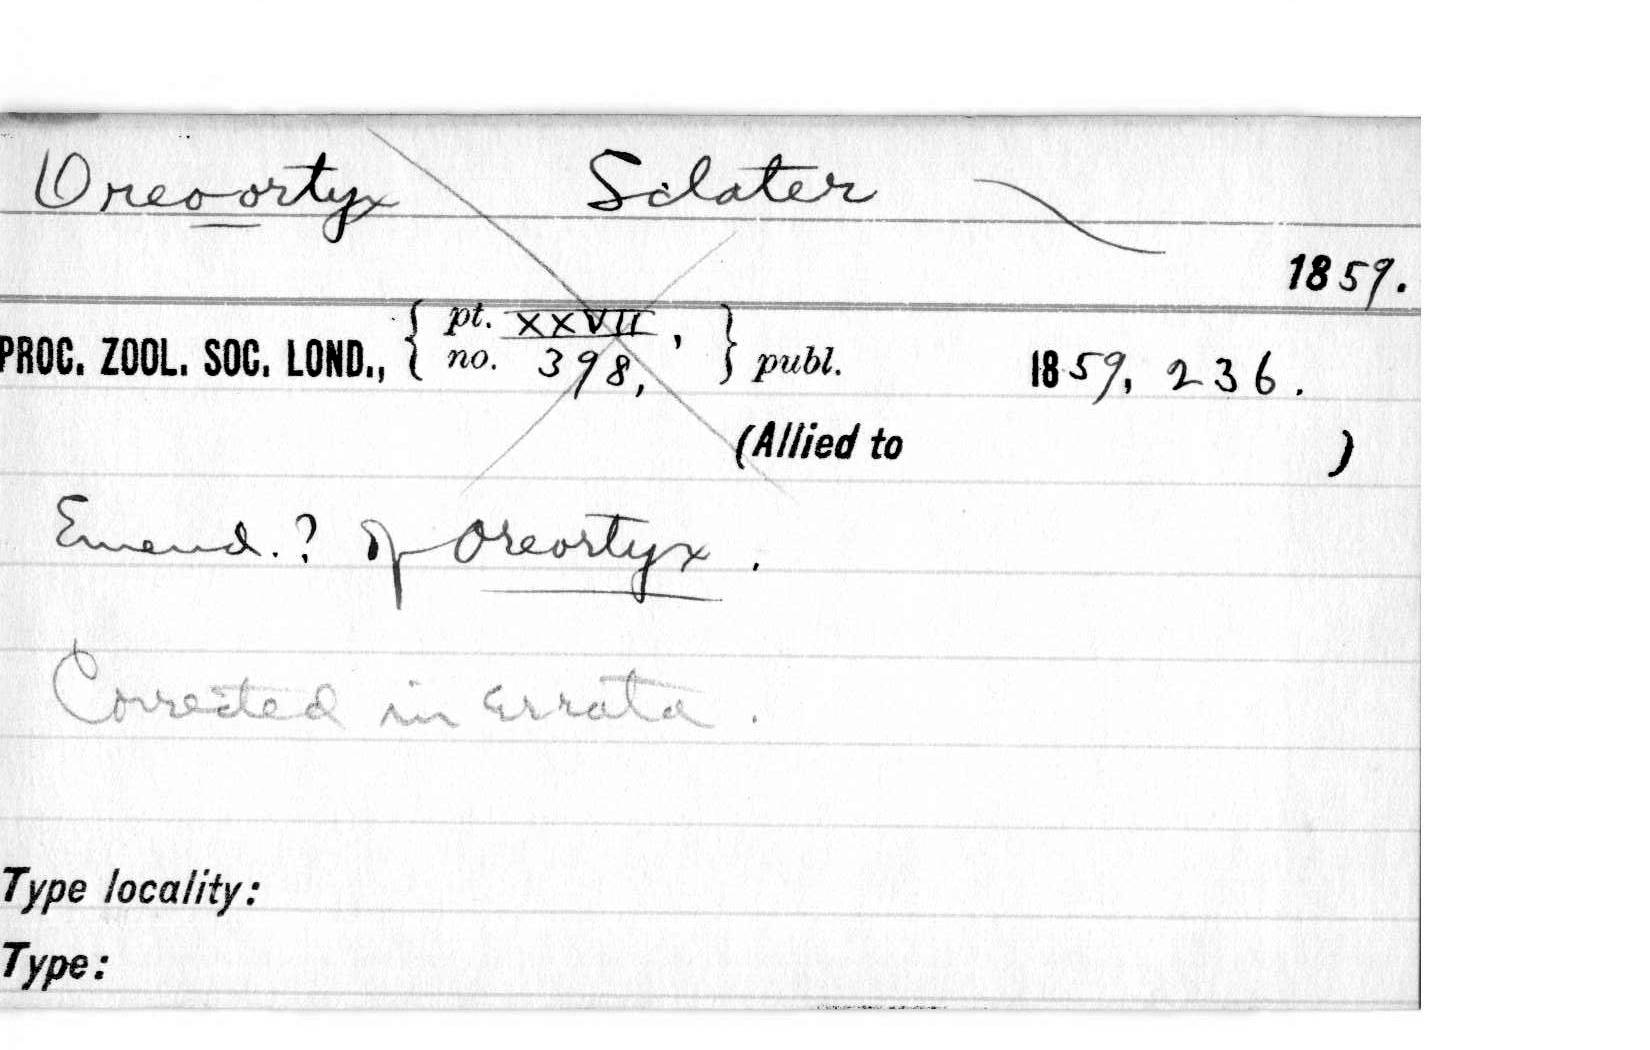 Oreoortyx Sclater
1859.
PROC. ZOOL. SOC. LOND., { pt. XXVII, } publ. 1859, 236.
no. 398,
(Allied to )
Emend.? of Oreortyx.
Corrected in Errata.
Type locality:
Type: